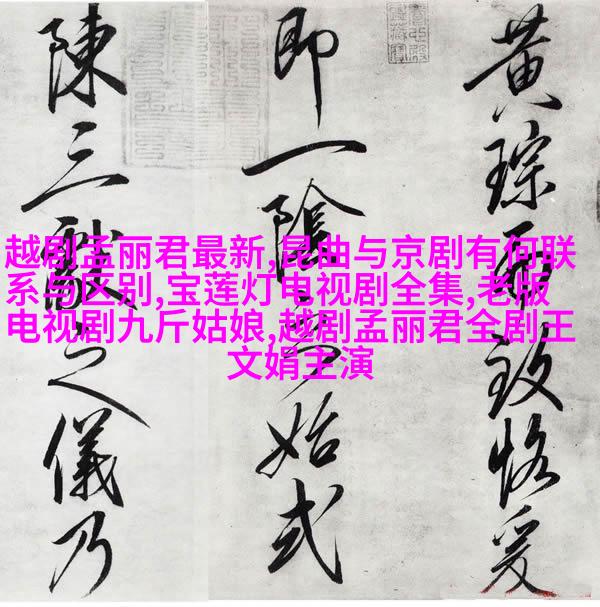 越剧孟丽君最新,昆曲与京剧有何联
系与区别,宝莲灯电视剧全集,老版
电视剧九斤姑娘,越剧孟丽君全剧王
文娟主演
黄琮而致恪爰
即一陰始式
陳三獻之儀乃